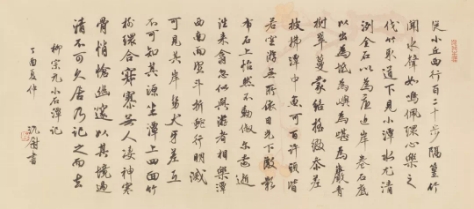 從小丘西行百二十步隔篁竹
聞水聲如鳴珮環心樂之
伐竹取道下見小潭水尤清
冽全石以為底近岸卷石底
以出為坻為嶼為嵁為巖青
樹翠蔓蒙絡摇綴參差
披拂潭中魚可百許頭皆
若空游無所依日光下澈影
布石上怡然不動俶爾遠逝
往來翕忽似與游者相樂潭
西南而望斗折蛇行明滅
可見其岸勢犬牙差互
不可知其源坐潭上四面竹
樹環合寂寥無人凄神寒
骨悄愴幽邃以其境過
清不可久居乃記之而去
柳宗元小石潭記
夏作
書